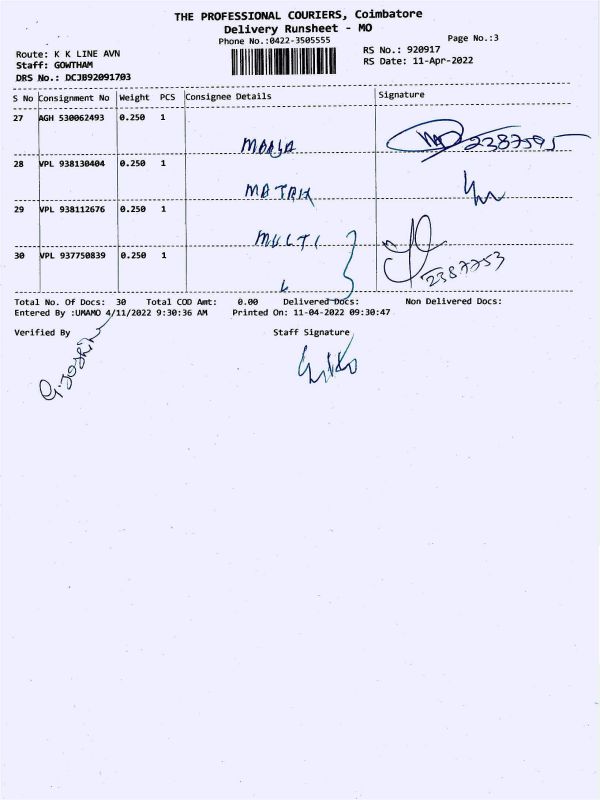 THE PROFESSIONAL COURIERS, Coimbatore
Delivery Runsheet - MO
Phone No.:0422-3505555
Page No.:3
Route: K K LINE AVN
RS No.: 920917
Staff: GOWTHAM
RS Date: 11-Apr-2022
DRS No.: DCJB92091703
S No Consignment No Weight PCS Consignee Details Signature
27 AGH 530062493 0.250 1
2387595
28 VPL 938130404 0.250 1
MATRIX
29 VPL 938112676 0.250 1
MULTI
30 VPL 937750839 0.250 1
2387753
Total No. Of Docs: 30 Total COD Amt: 0.00 Delivered Docs: Non Delivered Docs:
Entered By :UMAMO 4/11/2022 9:30:36 AM Printed On: 11-04-2022 09:30:47
Verified By Staff Signature